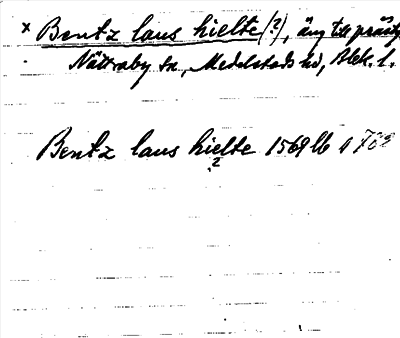 x Bentz laus hielte (?), äng till prästg
Nättraby sn, Medelstads hd, Blek. l.
Bentz laus hielte 1569 lb 4 703
?